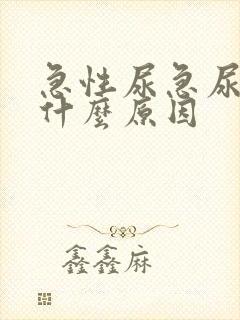 急性尿急尿
什麼原因
鑫鑫麻